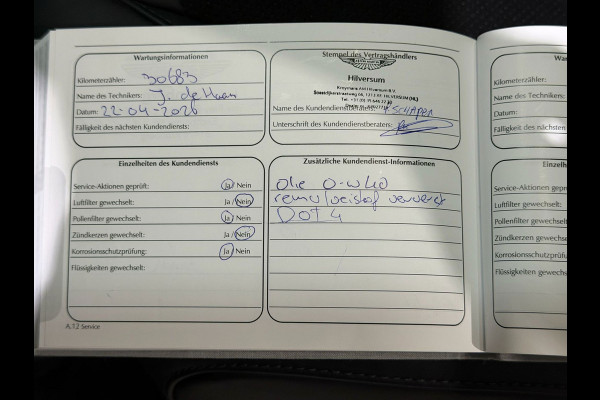 Wartungsinformationen
Kilometerzähler: 30683
Name des Technikers: J. de Haan
Datum: 22-04-2026
Fälligkeit des nächsten Kundendiensts:
Stempel des Vertragshändlers
Hilversum
Name des Kundendienstberaters:
Unterschrift des Kundendienstberaters:
Einzelheiten des Kundendiensts
Service-Aktionen geprüft: Ja / Nein
Luftfilter gewechselt: Ja / Nein
Pollenfilter gewechselt: Ja / Nein
Zündkerzen gewechselt: Ja / Nein
Korrosionsschutzprüfung: Ja / Nein
Flüssigkeiten gewechselt:
Zusätzliche Kundendienst-Informationen
Olie 0-W40
remvloeistof ververst
Dot 4
A.12 Service
Kilometerzähler:
Name des Technikers:
Datum:
Fälligkeit des nächsten
Service-Aktionen geprü
Luftfilter gewechselt:
Pollenfilter gewechselt:
Zündkerzen gewechselt:
Korrosionsschutzprüfu
Flüssigkeiten gewechse